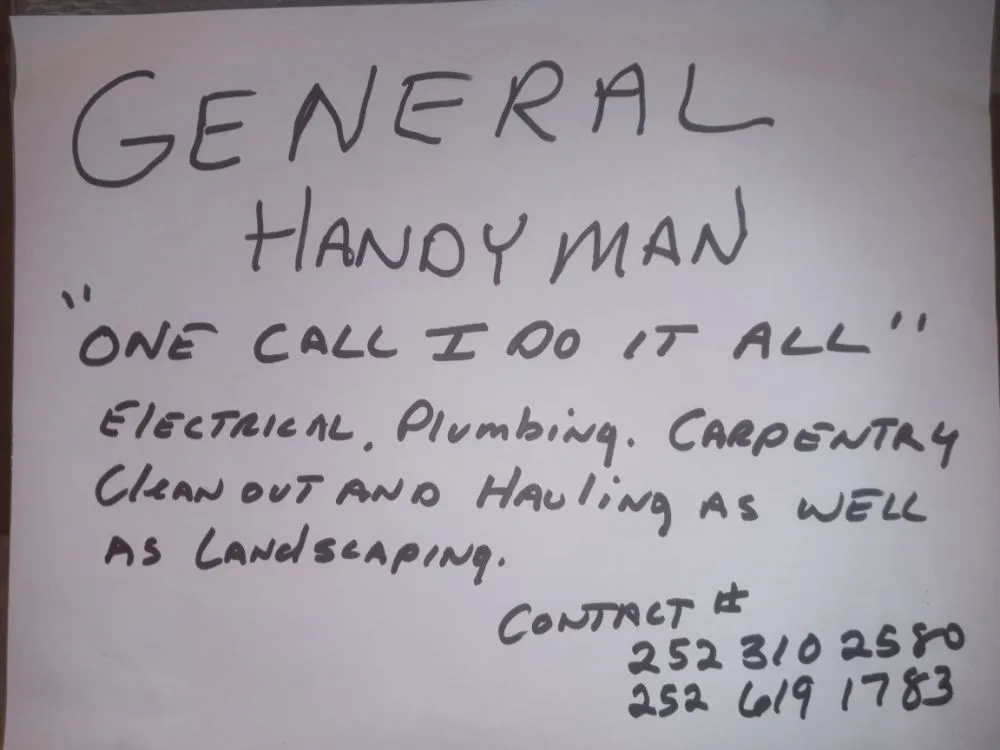 GENERAL
HANDY MAN
"ONE CALL I DO IT ALL"
ElECTRICAL, Plumbing. CARPENTRY
Clean out AND Hauling AS WELL
AS LANdSCAPING.
CONTACT #
252 310 2580
252 619 1783